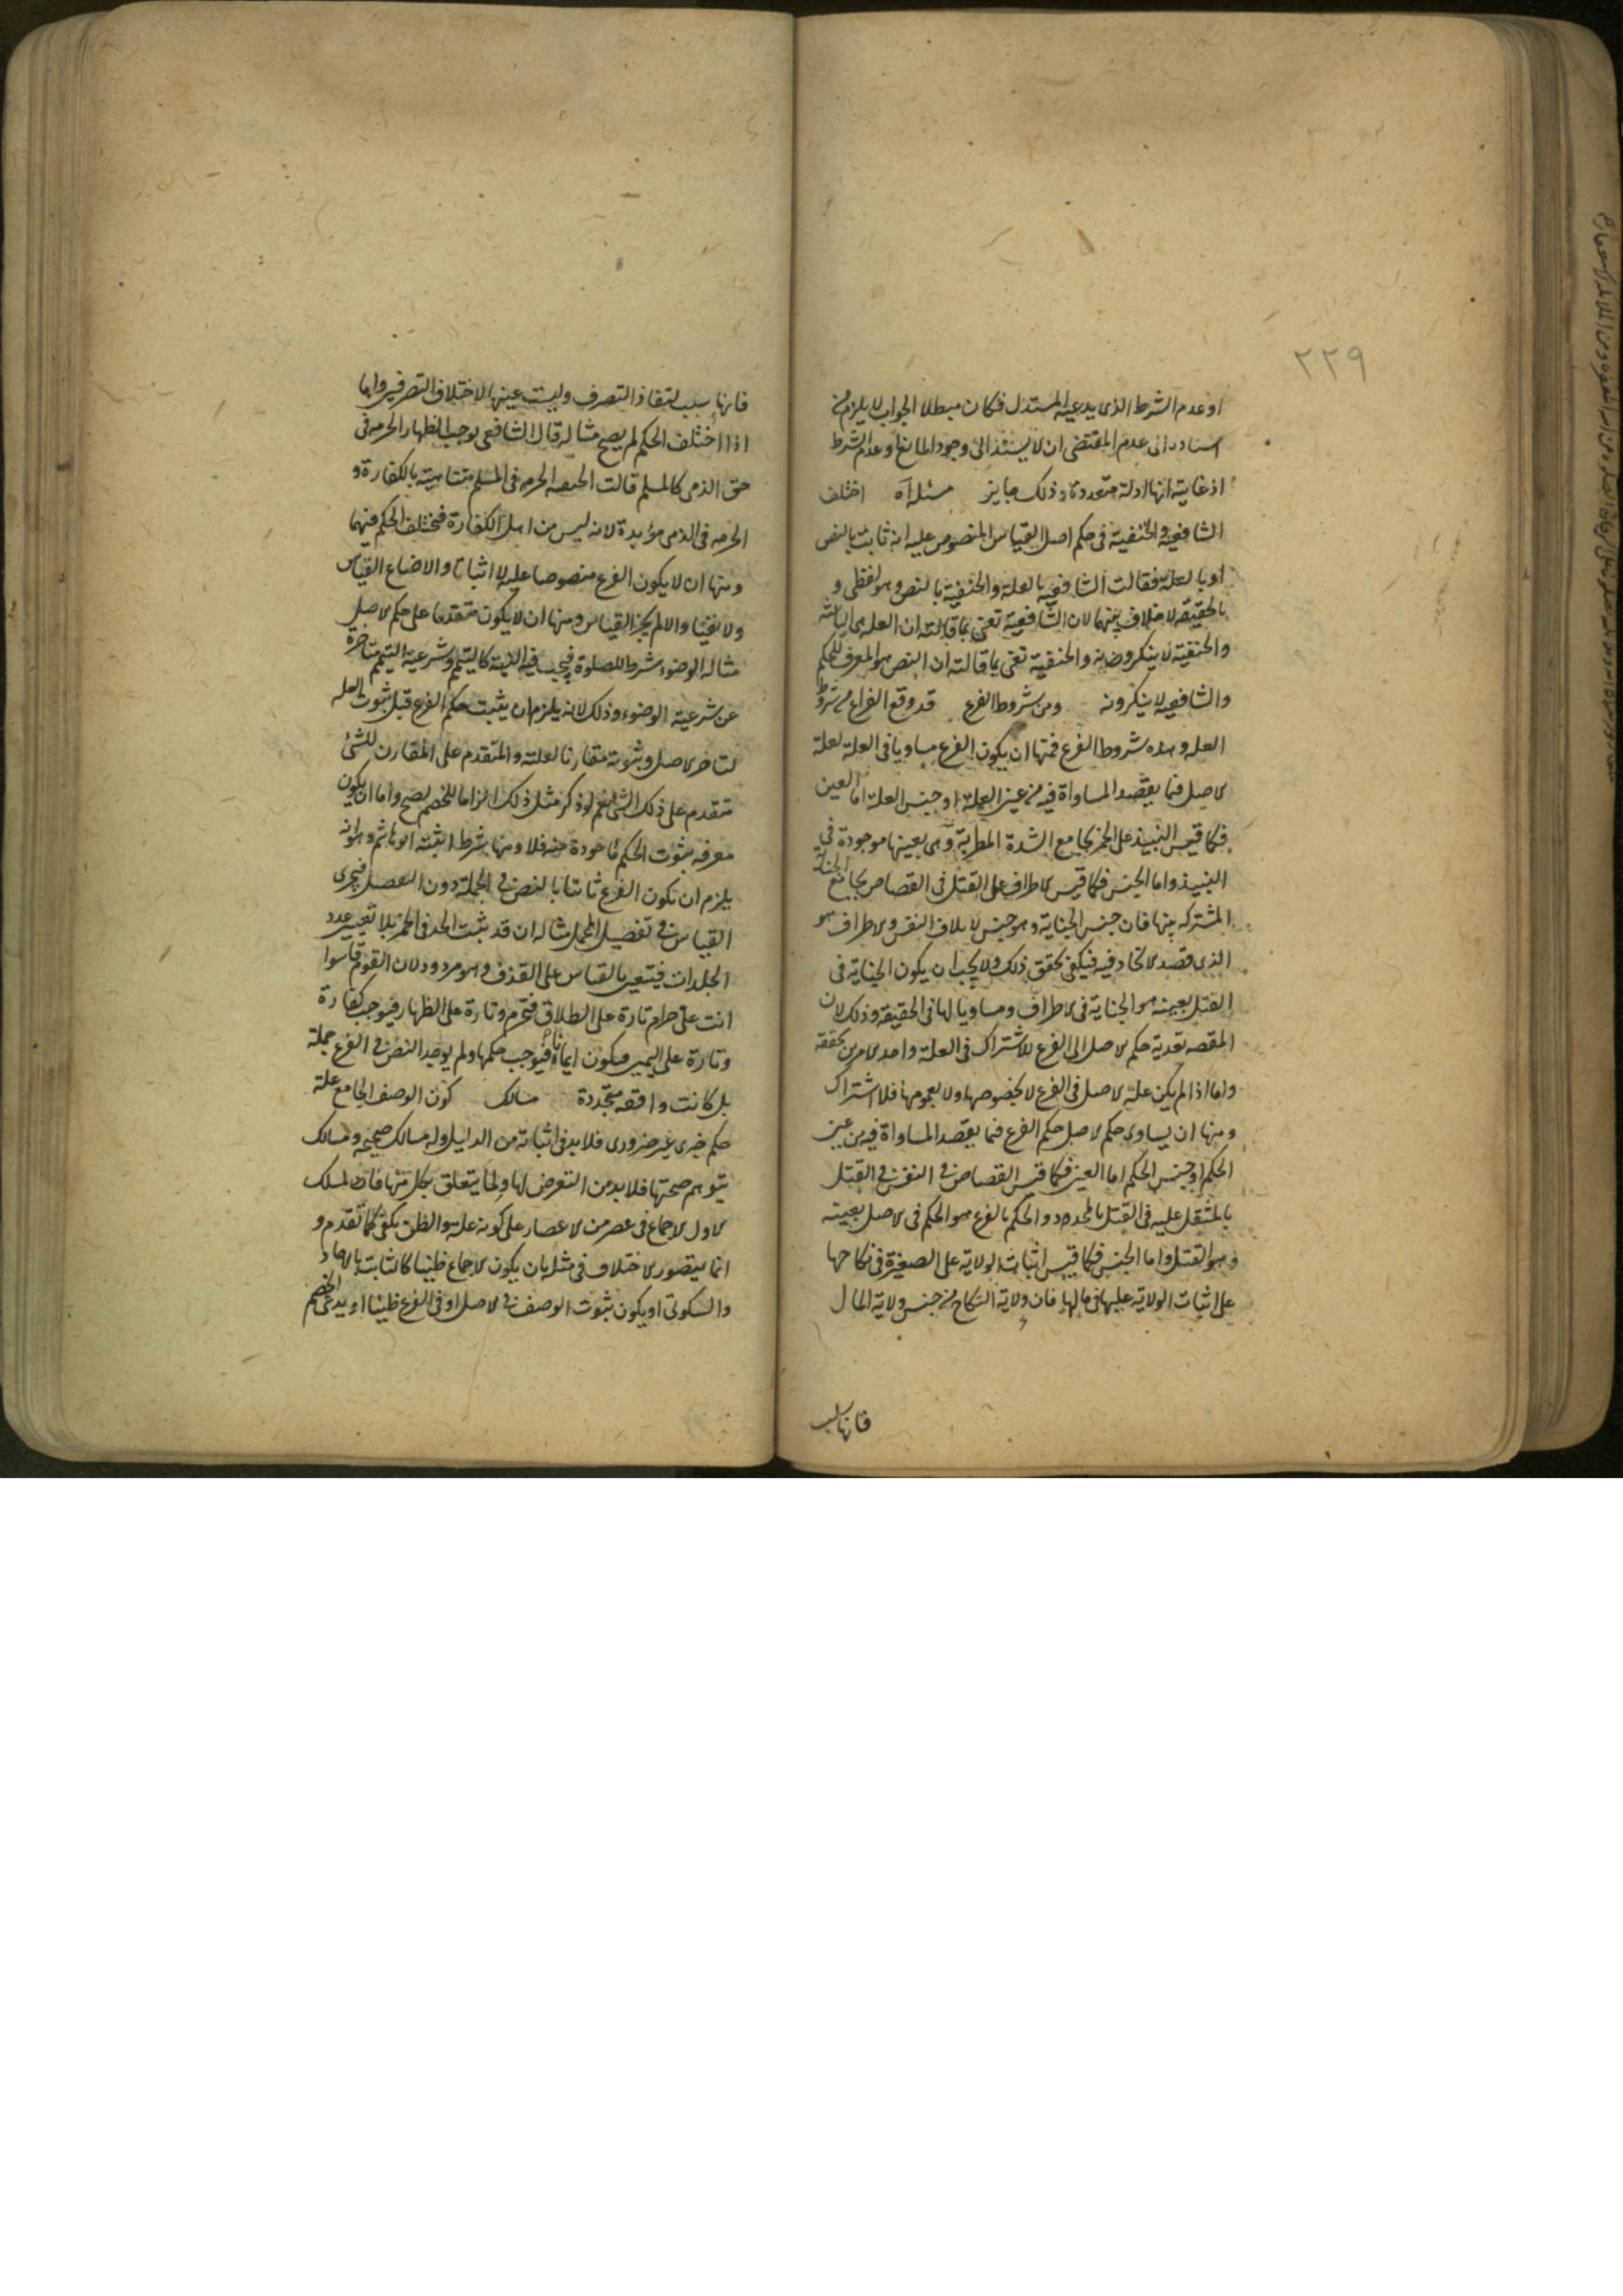 ٢٢٩
او عدم الشرط الذى يدعيه المستدل فكان مبطلا الجواب لا يلزم من
اسناده الى عدم المقتضى ان لا يستند الى وجود المانع او عدم الشرط
اذ غايته انها ادلة متعددة وذلك جايز مسئلة اختلف
الشافعية والحنفية فى حكم اصل القياس المنصوص عليه انه ثابت بالنص
او بالعلة فقالت الشافعية بالعلة والحنفية بالنص وهو لفظى و
بالحقيقة لا خلاف بينهما لان الشافعية تعنى بما قالته ان العلة هى الباعثة
والحنفية لا ينكرونه والحنفية تعنى بما قالته ان النص هو المعرف للحكم
والشافعية لا ينكرونه ومن شروط الفرع قد وقع الفراغ من شروط
العلة وهذه شروط الفرع فمنها ان يكون الفرع مساويا فى العلة لعلة
الاصل فيما يقصد المساواة فيه من عين العلة او جنس العلة اما العين
فكما قيس النبيذ على الخمر بجامع الشدة المطربة وهى بعينها موجودة فى
النبيذ واما الجنس فكما قيس الاطراف على القتل فى القصاص بجامع الجناية
المشتركه بينهما فان جنس الجناية وهو جنس لاتلاف النفس والاطراف هو
الذى قصد الاتحاد فيه فيكفى تحقق ذلك ولا يجب ان يكون الجناية فى
القتل بعينه هو الجناية فى الاطراف ومساويا لها فى الحقيقة وذلك لان
المقصد تعدية حكم الاصل الى الفرع للاشتراك فى العلة واحد الامرين تحققه
واما اذا لم يكن علة الاصل فى الفرع لا بخصوصها ولا بعمومها فلا اشتراك
ومنها ان يساوى حكم الاصل حكم الفرع فيما يقصد المساواة فيه من عين
الحكم او جنس الحكم اما العين فكما قيس القصاص فى النفس فى القتل
بالمثقل عليه فى القتل بالمحدد والحكم بالفرع هو الحكم فى الاصل بعينه
وهو القتل واما الجنس فكما قيس اثبات الولاية على الصغيرة فى نكاحها
على اثبات الولاية عليها فى مالها فان ولاية النكاح من جنس ولاية المال
فانها سبب
فانها سبب لنفاذ التصرف وليست عينها لاختلاف التصرفين واما
اذا اختلف الحكم لم يصح مثاله قال الشافعى يوجب الظهار الحرمه فى
حق الذمى كالمسلم قالت الحنفيه الحرمه فى المسلم متناهية بالكفارة و
الحرمه فى الذمى مؤبدة لانه ليس من اهل الكفارة فيختلف الحكم فيهما
ومنها ان لا يكون الفرع منصوصا عليه لا اثباتا والا ضاع القياس
ولا نفيا والا لم يجز القياس ومنها ان لا يكون متقدما على حكم الاصل
مثاله الوضوء شرط للصلوة فيجب فيه النية كالتيمم وشرعية التيمم متاخرة
عن شرعية الوضوء وذلك لانه يلزم ان يثبت حكم الفرع قبل ثبوت العلة
لتاخر الاصل وثبوته مقارنا لعلته والمتقدم على المقارن للشئ
متقدم على ذلك الشئ نعم لو ذكر مثل ذلك الزاما للخصم يصح واما ان يكون
معرفه بثبوت الحكم ماخوذة منه فلا ومنها شرط اثبته ابو هاشم وهو انه
يلزم ان تكون الفرع ثابتا بالنص فى الجملة دون التفصيل فيجرى
القياس فى تفصيل المجمل مثاله ان قد ثبت الحد فى الخمر بلا تعيين عدد
الجلدات فيتعين بالقياس على القذف وهو مردود لان القوم قاسوا
انت علىّ حرام تارة على الطلاق فتحرم وتارة على الظهار فيوجب كفارة
وتارة على اليمين فيكون ايلاء فيوجب حكمها ولم يوجد النص فى الفرع جملة
بل كانت واقعه متجددة مسالك كون الوصف الجامع علة
حكم خبرى غير ضرورى فلا بد فى اثباته من الدليل وله مسالك صحيحه ومسالك
يتوهم صحتها فلا بد من التعرض لها ولما يتعلق بكل منها فاذن لمسلك
الاول الاجماع فى عصر من الاعصار على كونه علة والظن يكفى كما تقدم و
انما يتصور الاختلاف فى مثله بان يكون الاجماع ظنيا كالثابت بالاحاد
والسكوتى او يكون ثبوت الوصف فى الاصل او فى الفرع ظنيا او يدعى الخصم